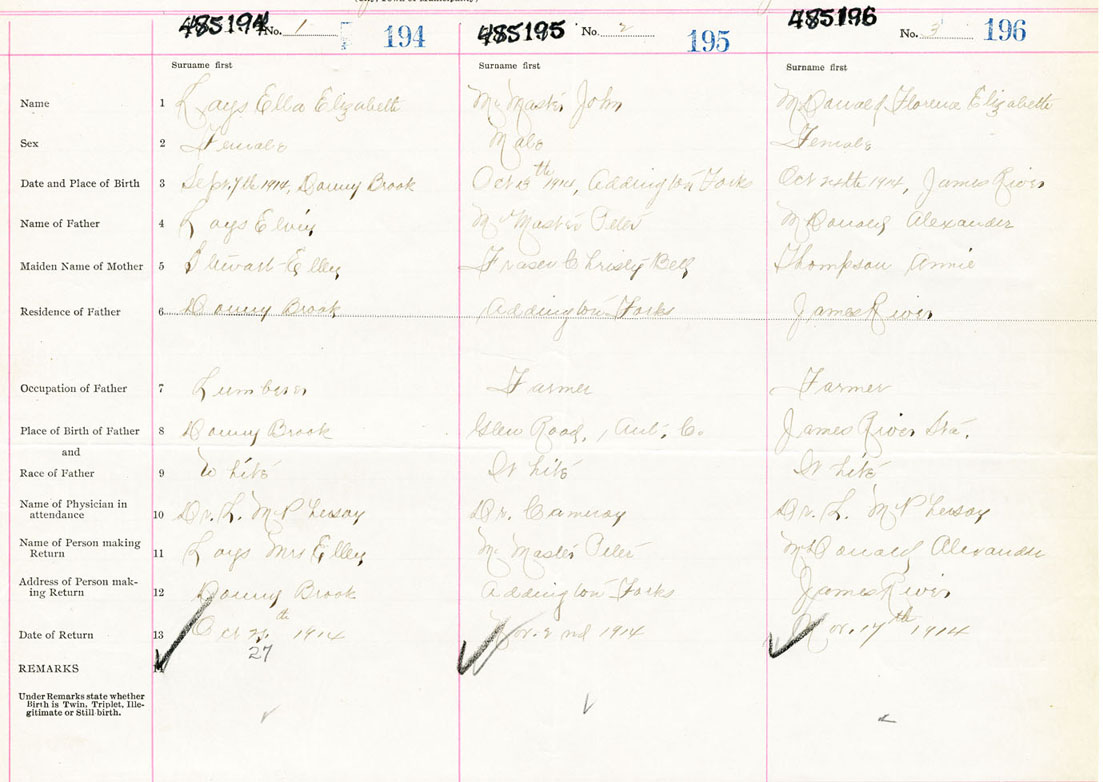 (City, Town or Municipality)
485194 No. 1 194 485195 No. 2 195 485196 No. 3 196
Surname first Surname first Surname first
Name 1 Kays Ella Elizabeth McMaster John McDonald Florence Elizabeth
Sex 2 Female Male Female
Date and Place of Birth 3 Sept 7th 1914, Donny Brook Oct 13th 1914, Addington Forks Oct 24th 1914, James River
Name of Father 4 Kays Elvin McMaster Peter McDonald Alexander
Maiden Name of Mother 5 Stewart Ellen Fraser Christy Bell Thompson Annie
Residence of Father 6 Donny Brook Addington Forks James River
Occupation of Father 7 Farmer Farmer
Place of Birth of Father 8 Donny Brook Glen Road, Ant. Co. James River Sta.
and
Race of Father 9 White White White
Name of Physician in
attendance 10 Dr. Cameron
Name of Person making
Return 11 Kays Mrs Ellen McMaster Peter McDonald Alexander
Address of Person mak-
ing Return 12 Donny Brook Addington Forks James River
Date of Return 13 Oct th 1914 Nov. 2nd 1914 Nov. 17th 1914
27
REMARKS 14
Under Remarks state whether
Birth is Twin, Triplet, Ille-
gitimate or Still birth.